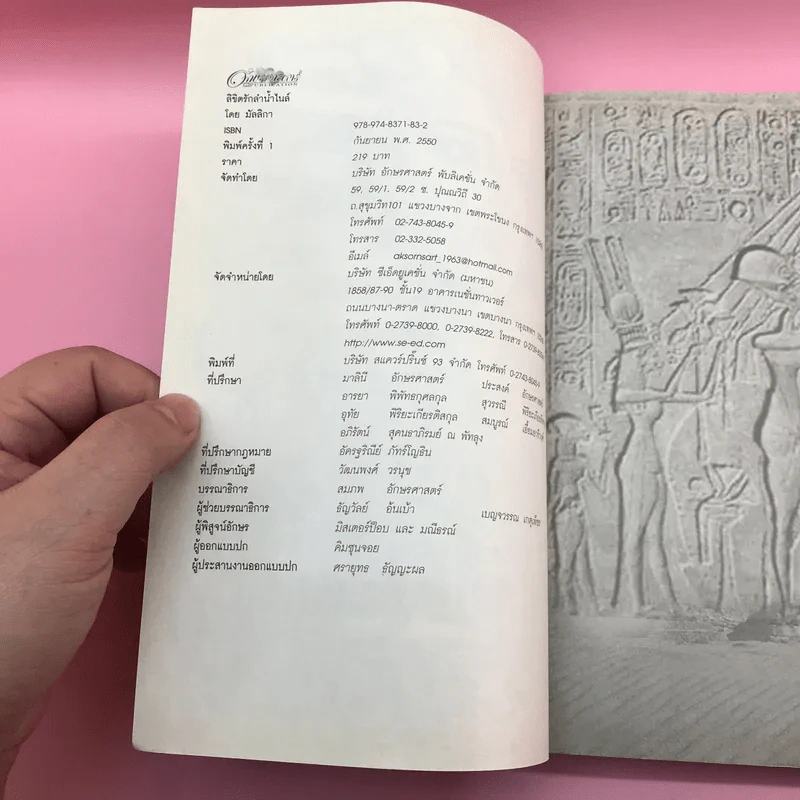 PUBLICATION
ลิขิตรักลำน้ำไนล์
โดย มัลลิกา
ISBN 978-974-8371-83-2
พิมพ์ครั้งที่ 1 กันยายน พ.ศ. 2550
ราคา 219 บาท
จัดทำโดย บริษัท อักษรศาสตร์ พับลิเคชั่น จำกัด
59, 59/1, 59/2 ซ. ปุณณวิถี 30
ถ.สุขุมวิท101 แขวงบางจาก เขตพระโขนง กรุงเทพฯ
โทรศัพท์ 02-743-8045-9
โทรสาร 02-332-5058
อีเมล์ aksornsart_1963@hotmail.com
จัดจำหน่ายโดย บริษัท ซีเอ็ดยูเคชั่น จำกัด (มหาชน)
1858/87-90 ชั้น19 อาคารเนชั่นทาวเวอร์
ถนนบางนา-ตราด แขวงบางนา เขตบางนา กรุงเทพฯ
โทรศัพท์ 0-2739-8000, 0-2739-8222, โทรสาร
http://www.se-ed.com
พิมพ์ที่ บริษัท สแควร์ปริ๊นซ์ 93 จำกัด โทรศัพท์ 0-2743-8045-9
ที่ปรึกษา มาลินี อักษรศาสตร์ ประสงค์ อักษรศาสตร์
อารยา พิพัทธกุศลกุล สุวรรณี
อุทัย พิริยะเกียรติสกุล สมบูรณ์
อภิรัตน์ สุคนธาภิรมย์ ณ พัทลุง
ที่ปรึกษากฎหมาย อัครฐริณีย์ ภัทร์โญธิน
ที่ปรึกษาบัญชี วัฒนพงศ์ วรนุช
บรรณาธิการ สมภพ อักษรศาสตร์
ผู้ช่วยบรรณาธิการ ธัญวัลย์ อ้นเบ้า เบญจวรรณ
ผู้พิสูจน์อักษร มิสเตอร์ป๊อบ และ มณีธรณ์
ผู้ออกแบบปก คิมซุนจอย
ผู้ประสานงานออกแบบปก ศรายุทธ ธัญญะผล